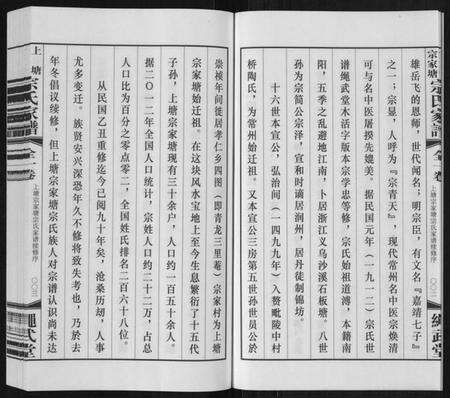 宗家塘宗氏家譜
全一卷
上塘宗家塘宗氏家谱续修序
绳武堂
雄岳飞的恩师，世代闻名；明宗臣，有文名『嘉靖七子』
之一；宗显，人呼为『宗青天』，现代常州名中医宗焕清
可与名中医屠揆先媲美。据民国元年（一九一二）宗氏世
谱绳武堂木活字版本宗学忠等修，宗氏始祖道溥，本籍南
阳，五季之乱避地江南，卜居浙江义乌沙溪石板塘。八世
孙为宗简公宗泽，宣和时谪居润州，居丹徒制锦坊。
十六世本宣公，弘治间（一四九九年）入赘毗陵中村
桥陶氏，为常州始迁祖。又本宣公三房第五世孙世员公於
崇祯年间徙居孝仁乡四图（即青龙三里菴）宗家村为上塘
宗家塘始迁祖。在这块风水宝地上至今生息繁衍了十五代
子孙，上塘宗家塘现有三十余户，人口约一百五十余人。
据二〇一二年全国人口统计，宗姓人口约三十二万，占总
人口比为百分之零点零二，全国姓氏排名二百六十八位。
从民国乙丑重修迄今已阅九十年矣，沧桑历劫，人事
尤多变迁。族贤安兴深恐年久不修将致失考也，乃於去
年冬倡议续修。但上塘宗家塘宗氏族人对宗谱认识尚未达
上塘宗氏家譜
全一卷
上塘宗家塘宗氏家谱续修序
绳武堂